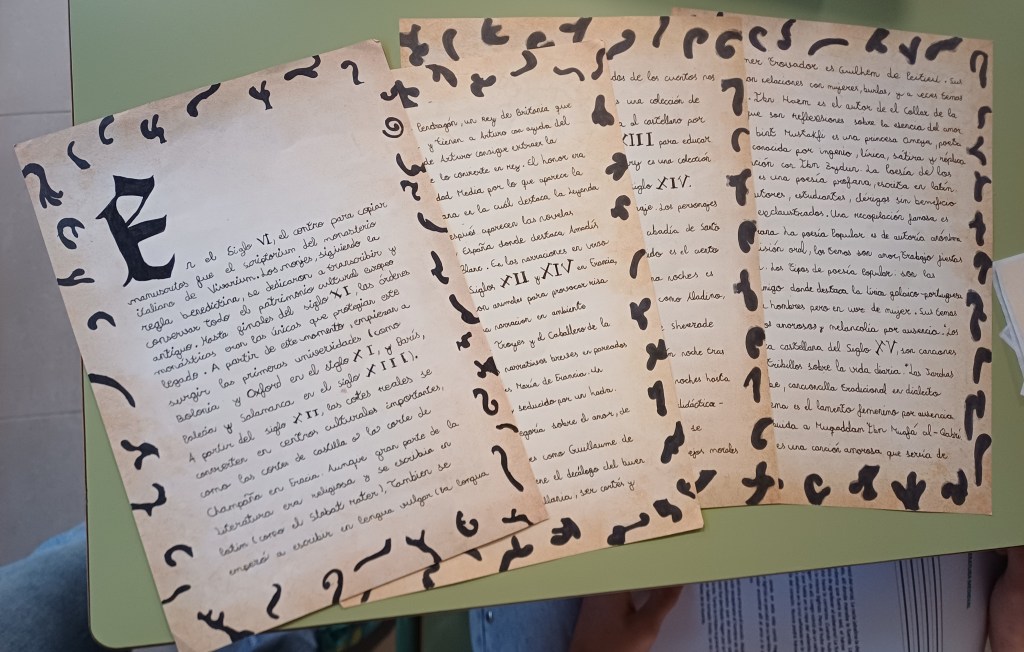 En el Siglo VI, el centro para copiar
manuscritos fue el scriptorium del monasterio
italiano de Vivarium. Los monjes, siguiendo la
regla benedictina, se dedicaron a transcribir y
conservar todo el patrimonio cultural europeo
antiguo. Hasta finales del siglo XI, las órdenes
monásticas eran las únicas que protegían este
legado. A partir de este momento, empiezan a
surgir las primeras universidades (como
Bolonia y Oxford en el siglo XI, y París,
Palecia y Salamanca en el siglo XIII).
A partir del siglo XII, las cortes reales se
convierten en centros culturales importantes,
como las cortes de castilla o las corte de
Champaña en Fracia. Aunque gran parte de la
literatura era religiosa y se escribía en
latín (como el Stabat Mater), también se
empezó a escribir en lengua vulgar (en lengua
Pentragón, un rey de Britania que
y tienen a Arturo con ayuda del
de Arturo consigue extraer la
e lo convierte en rey. El honor era
dad Media por lo que aparece la
ana es la cuál destaca la leyenda
espués aparecen las novelas
España donde destaca Amadís
Blanc. En las narraciones en verso
Siglos XII y XIV en Francia,
con animales para provocar risa
a narracion en ambiento
Troyes y el Caballero de la
narrativos breves en pareados
es María de Francia. Un
seducido por un hada.
egoría sobre el amor, de
es como Guillaume de
ene el decálogo del buen
llania, ser cortés y
das de los cuentos nos
s una colección de
a al castellano por
XIII para educar
ry es una colección
iglo XIV.
aje. Los personajes
abadía de Santo
ado es el aexto
na noches es
como Aladino,
Sherezade
n noche tras
noches hasta
didáctica-
se
ejos morales
mer Trovador es Guilhem de Peitieu. Sus
on relaciones con mujeres, burlas, y a veces temas
. Ibn Hazem es el autor de el Collar de la
que son reflexsiones sobre la esencia del amor
bint Mustakfi es una princesa Omeya, poeta
conocida por ingenio, lírica, sátira y réplica
ción con Ibn Zaydun. La Poesía de los
es una poesía profana, escrita en latín
utores, estudiantes, clérigos sin beneficio
exclaustrados. Una recopilación famosa es
rana. La poesía Popular es de autoría anónima
usión oral, los temas son amor, trabajo fiestas
. Los tipos de poesía popular son las
migo donde destaca la línea galaico-portuguesa
hombres pero en voz de mujer. Sus temas
s amorosos y melancolía por ausencia. Los
a castellana del Siglo XV, son canciones
stribillos sobre la vida diaria. Las Jarchas
e, cancioncilla tradicional en dialecto
ema es el lamento femenino por ausencia
buida a Muqaddam Ibn Muafá al-Qabri
es una canción amorosa que sería de